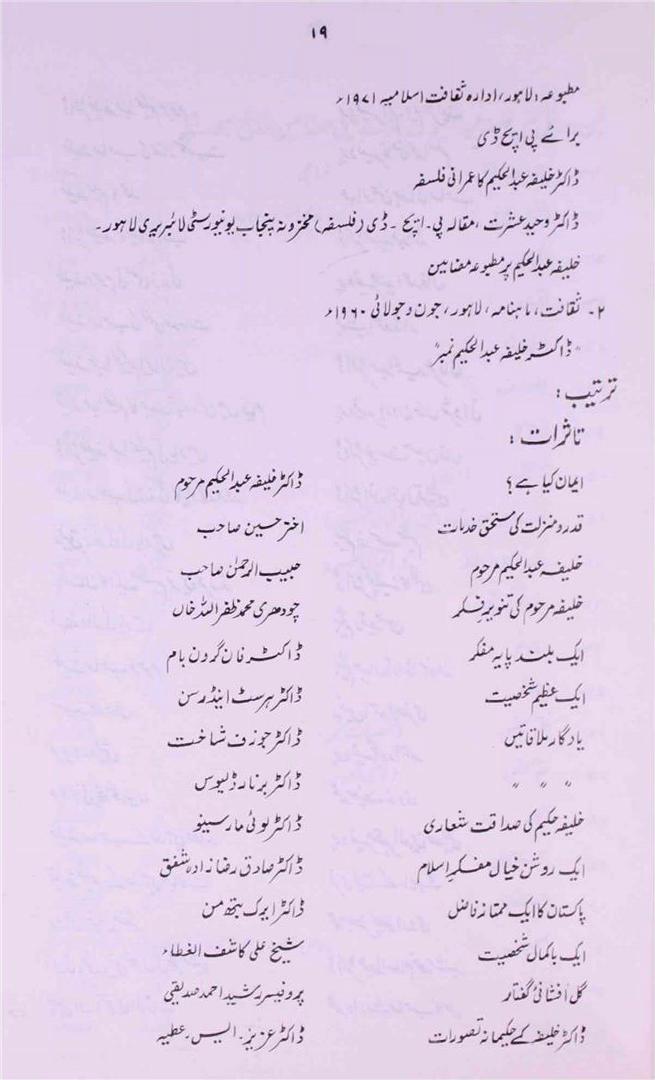 ۱۹
مطبوعہ: لاہور، ادارہ ثقافت اسلامیہ ۱۹۷۱ء
برائے پی ایچ ڈی
ڈاکٹر خلیفہ عبدالحکیم کا عمرانی فلسفہ
ڈاکٹر وحید عشرت، مقالہ پی۔ ایچ ۔ ڈی (فلسفہ) مخزونہ پنجاب یونیورسٹی لائبریری لاہور۔
خلیفہ عبدالحکیم پر مطبوعہ مضامین
۲۔ ثقافت، ماہنامہ، لاہور، جون و جولائی ۱۹۶۰ء
"ڈاکٹر خلیفہ عبدالحکیم نمبر"
ترتیب:
تاثرات:
ایمان کیا ہے؟ ڈاکٹر خلیفہ عبدالحکیم مرحوم
قدر و منزلت کی مستحق خدمات اختر حسین صاحب
خلیفہ عبدالحکیم مرحوم حبیب الرحمٰن صاحب
خلیفہ مرحوم کی تنویرِ فکر چودھری محمد ظفر اللہ خاں
ایک بلند پایہ مفکر ڈاکٹر فان گرون بام
ایک عظیم شخصیت ڈاکٹر ہرسٹ اینڈرسن
یادگار ملاقاتیں ڈاکٹر جوزف شاخت
" " " ڈاکٹر برنارڈ لیوس
خلیفہ حکیم کی صداقت شعاری ڈاکٹر لوئی مارسینو
ایک روشن خیال مفکرِ اسلام ڈاکٹر صادق رضا زادہ شفق
پاکستان کا ایک ممتاز فاضل ڈاکٹر ایرک بیتھ من
ایک باکمال شخصیت شیخ علی کاشف الغطاء
گل افشانیٔ گفتار پروفیسر رشید احمد صدیقی
ڈاکٹر خلیفہ کے حکیمانہ تصورات ڈاکٹر عزیز۔ ایس۔ عطیہ